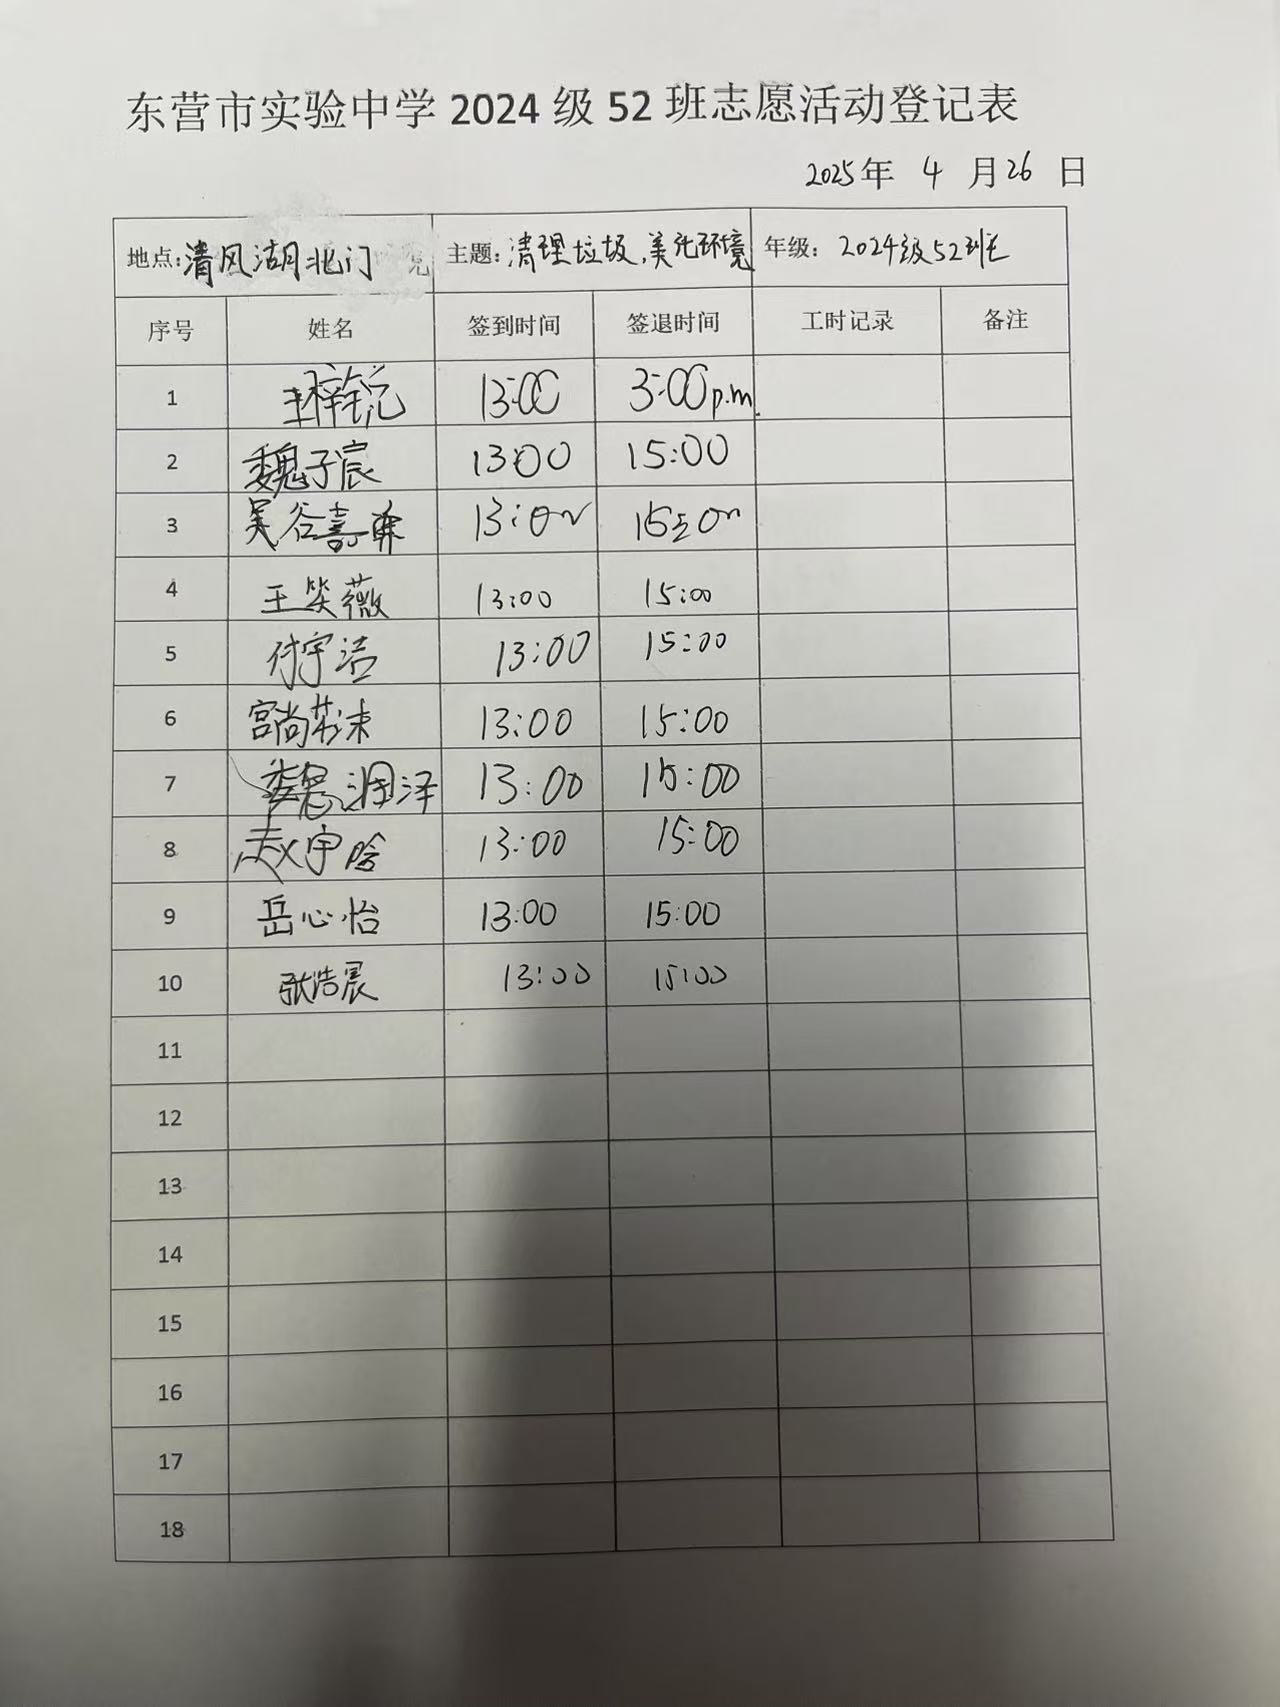 东营市实验中学 2024 级 52 班志愿活动登记表
2025年 4 月 26 日
地点:清风湖北门 主题:清理垃圾,美化环境 年级:2024级52班
序号 姓名 签到时间 签退时间 工时记录 备注
1 王梓锐 13:00 3:00p.m.
2 魏子宸 13:00 15:00
3 吴谷 13:00 15:00
4 王笑薇 13:00 15:00
5 付宇洁 13:00 15:00
6 宫尚 13:00 15:00
7 魏润泽 13:00 15:00
8 赵宇晗 13:00 15:00
9 岳心怡 13:00 15:00
10 张浩展 13:00 15:00
11
12
13
14
15
16
17
18